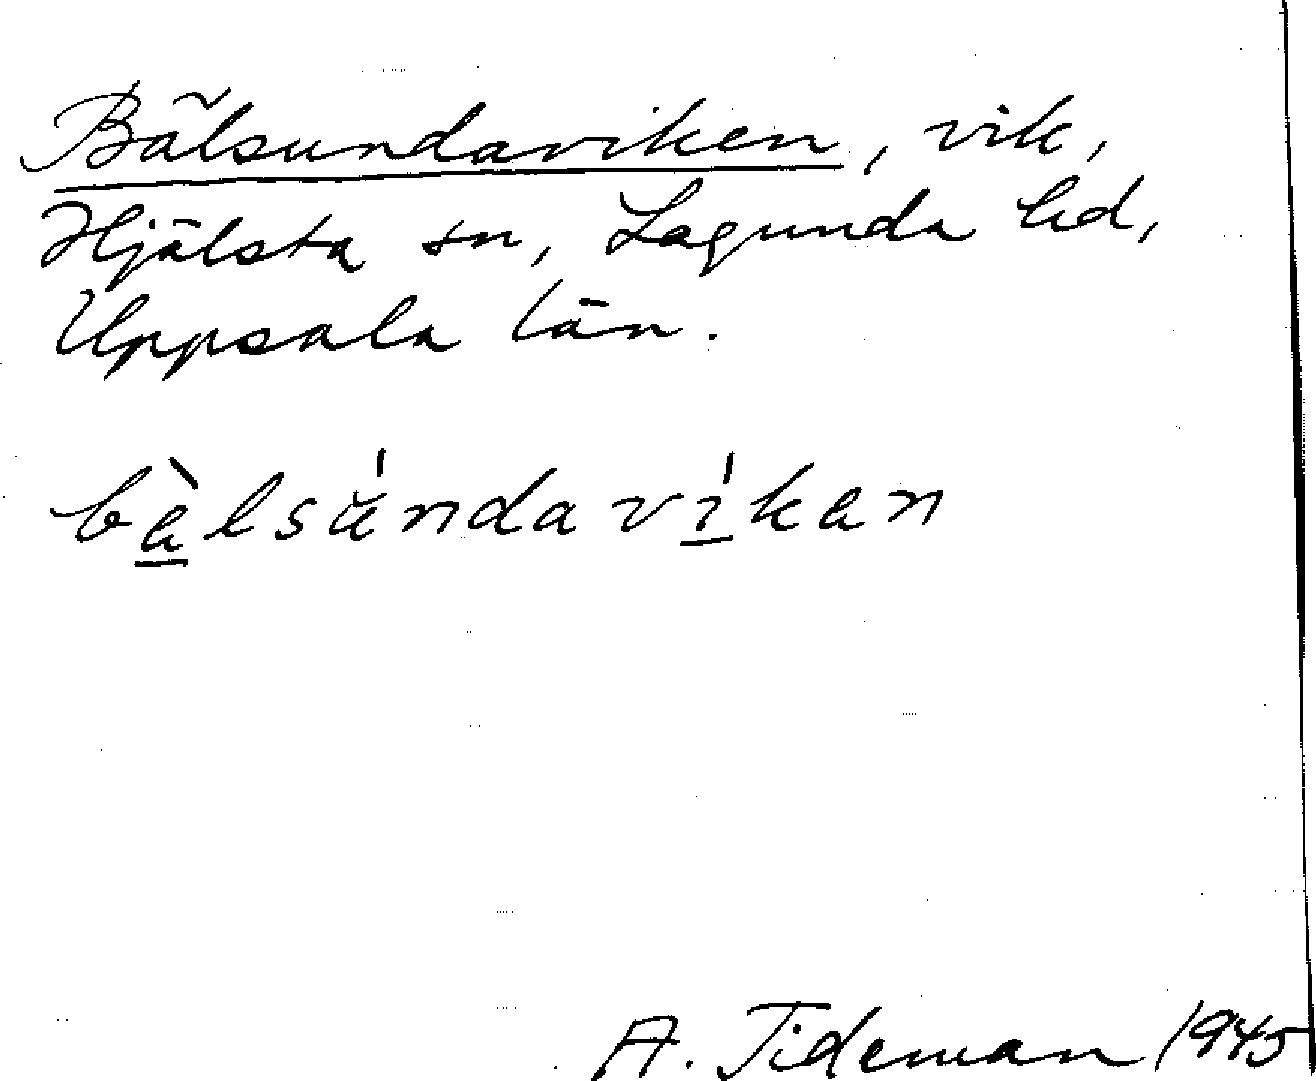 Bälsundaviken, vik,
Hjälsta sn, Lagunda hd,
Uppsala län.
bàlsúndavíkan
A. Tideman 1945